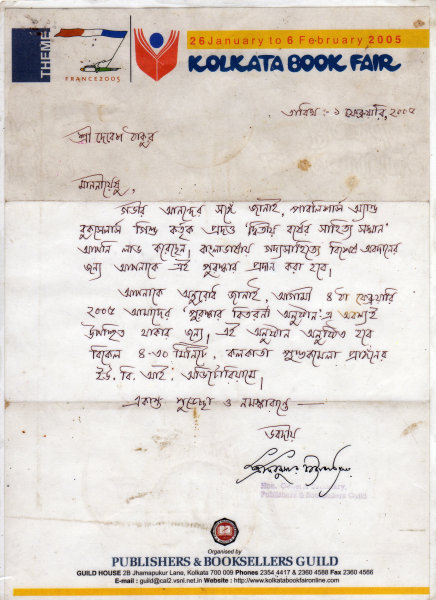 THEME
FRANCE2005
26 January to 6 February 2005
KOLKATA BOOK FAIR
তারিখ :- ১ ফেব্রুয়ারি, ২০০৫
শ্রী দেবেশ ঠাকুর
মাননীয়েষু,
গভীর আনন্দের সঙ্গে জানাই, পাবলিশার্স অ্যান্ড
বুকসেলার্স গিল্ড কর্তৃক প্রদত্ত 'দ্বিতীয় বর্ষের সাহিত্য সম্মান'
আপনি লাভ করেছেন। বাংলাভাষায় গদ্যসাহিত্যে বিশেষ অবদানের
জন্য আপনাকে এই পুরস্কার প্রদান করা হবে।
আপনাকে অনুরোধ জানাই, আগামী ৪ঠা ফেব্রুয়ারি
২০০৫ আমাদের 'পুরস্কার বিতরণী অনুষ্ঠান'এ অবশ্যই
উপস্থিত থাকার জন্য। এই অনুষ্ঠান অনুষ্ঠিত হবে
বিকেল ৪-৩০ মিনিটে, কলকাতা পুস্তকমেলা প্রাঙ্গনের
ইউ. বি. আই. অডিটোরিয়ামে।
একান্ত শুভেচ্ছা ও নমস্কারান্তে —
ভবদীয়
Publishers & Booksellers Guild
Organised by
PUBLISHERS & BOOKSELLERS GUILD
GUILD HOUSE 2B Jhamapukur Lane, Kolkata 700 009 Phones 2354 4417 & 2360 4588 Fax 2360 4566
E-mail : guild@cal2.vsnl.net.in Website : http://www.kolkatabookfaironline.com